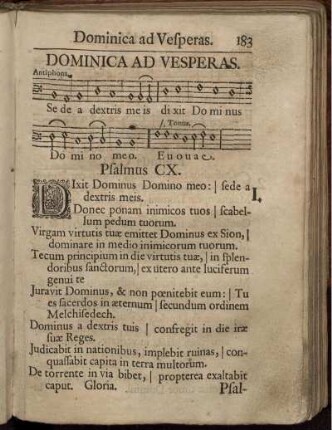 Dominica ad Veſperas. 183
DOMINICA AD VESPERAS.
Antiphona.
Se de a dextris me is di xit Do mi nus
J. Tonus.
Do mi no meo. E u o u a e.
Pſalmus CX.
DIxit Dominus Domino meo: | ſede a
dextris meis. I.
Donec ponam inimicos tuos | ſcabel-
lum pedum tuorum.
Virgam virtutis tuæ emittet Dominus ex Sion, |
dominare in medio inimicorum tuorum.
Tecum principium in die virtutis tuæ, | in ſplen-
doribus ſanctorum, ex utero ante luciferum
genui te
Juravit Dominus, & non pœnitebit eum: | Tu
es ſacerdos in æternum | ſecundum ordinem
Melchiſedech.
Dominus a dextris tuis | confregit in die iræ
ſuæ Reges.
Judicabit in nationibus, implebit ruinas, | con-
quaſſabit capita in terra multorum.
De torrente in via bibet, | propterea exaltabit
caput. Gloria. Pſal-